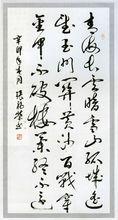 青海长云暗雪山孤城遥
望玉门关黄沙百战穿
金甲不破楼兰终不还
辛卯年